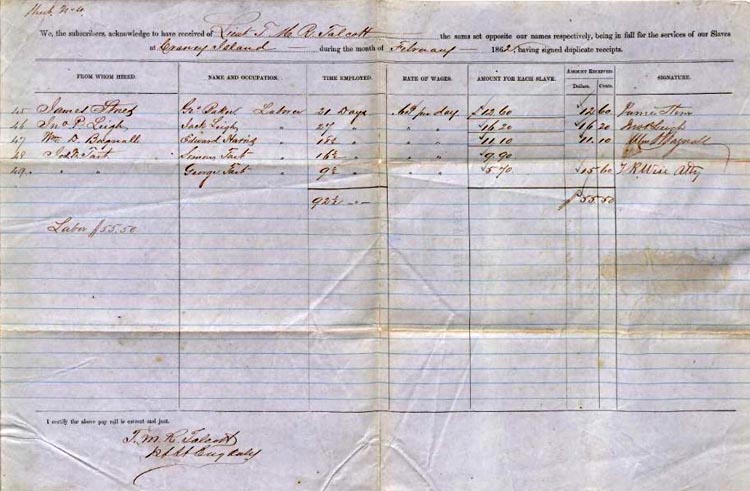 We, the subscribers, acknowledge to have received of Lieut T. M. R. Talcott the sums set opposite our names respectively, being in full for the services of our Slaves
at Craney Island during the month of February 1862, having signed duplicate receipts.
FROM WHOM HIRED. NAME AND OCCUPATION. TIME EMPLOYED. RATE OF WAGES. AMOUNT FOR EACH SLAVE. AMOUNT RECEIVED. Dollars. Cents. SIGNATURE.
45 James Geo Baker Laborer 21 Days 60 per day $12.60 $12 60 James
46 Jno P. Leigh Jack Leigh " 27 " " " $16.20 $16 20 Jno P Leigh
47 Wm D. Bagnall Edward Harris " 18½ " " " $11.10 $11.10 Wm D Bagnall
48 Tart Tart " 16½ " " " $9.90
49 " " George Tart " 9½ " " " $5.70 $15 60 T R Wise Atty
92½ " $55.50
Labor $55.50
I certify the above pay roll is correct and just.
T. M. R. Talcott